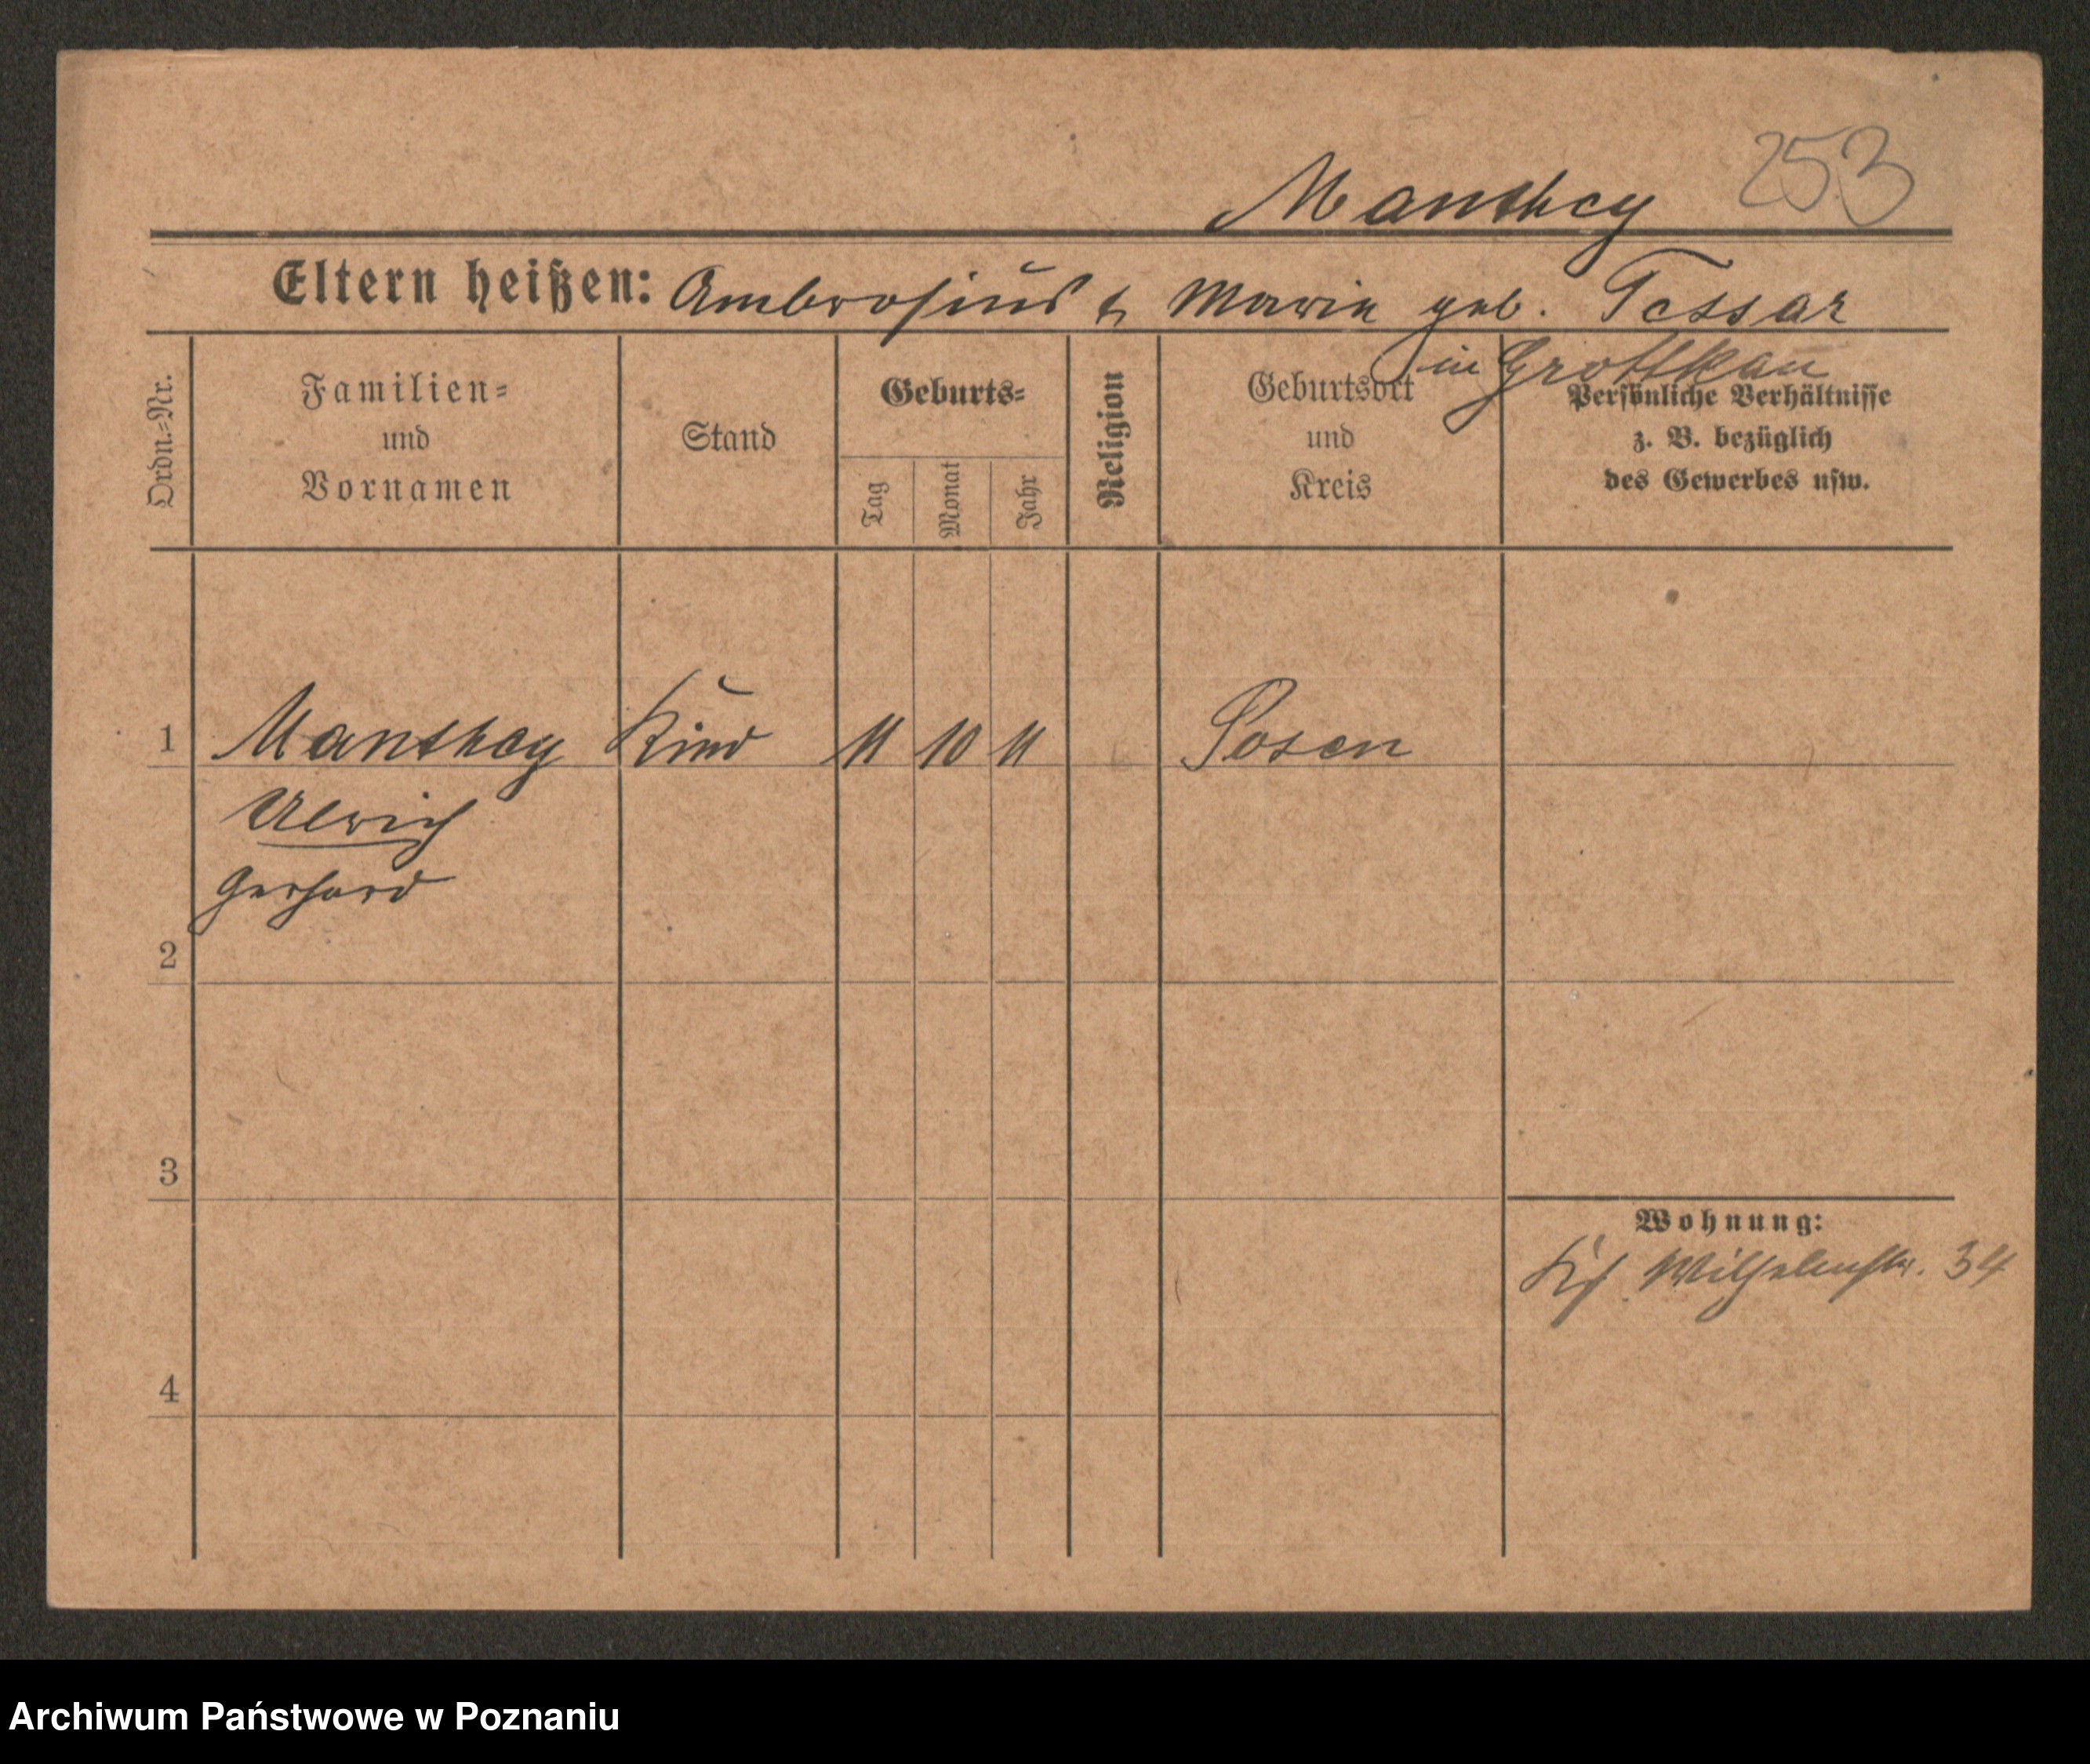 253
Manthey
Eltern heißen: Ambrosius & Marie geb. Tessar
in Grottkau
Ordn.-Nr.
Familien-
und
Vornamen
Stand
Geburts-
Tag
Monat
Jahr
Religion
Geburtsort
und
Kreis
Persönliche Verhältnisse
z. B. bezüglich
des Gewerbes usw.
1 Manthey Kind 11 10 11 Posen
Ulrich
Gerhard
2
3
Wohnung:
Wilhelmstr. 34
4
Archiwum Państwowe w Poznaniu